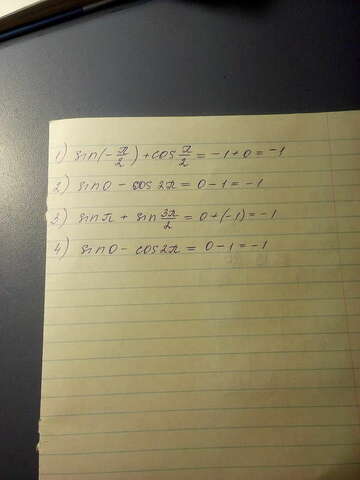 1) sin(-π/2) + cos π/2 = -1 + 0 = -1
2) sin0 - cos 2π = 0 - 1 = -1
3) sin π + sin 3π/2 = 0 + (-1) = -1
4) sin0 - cos2π = 0 - 1 = -1